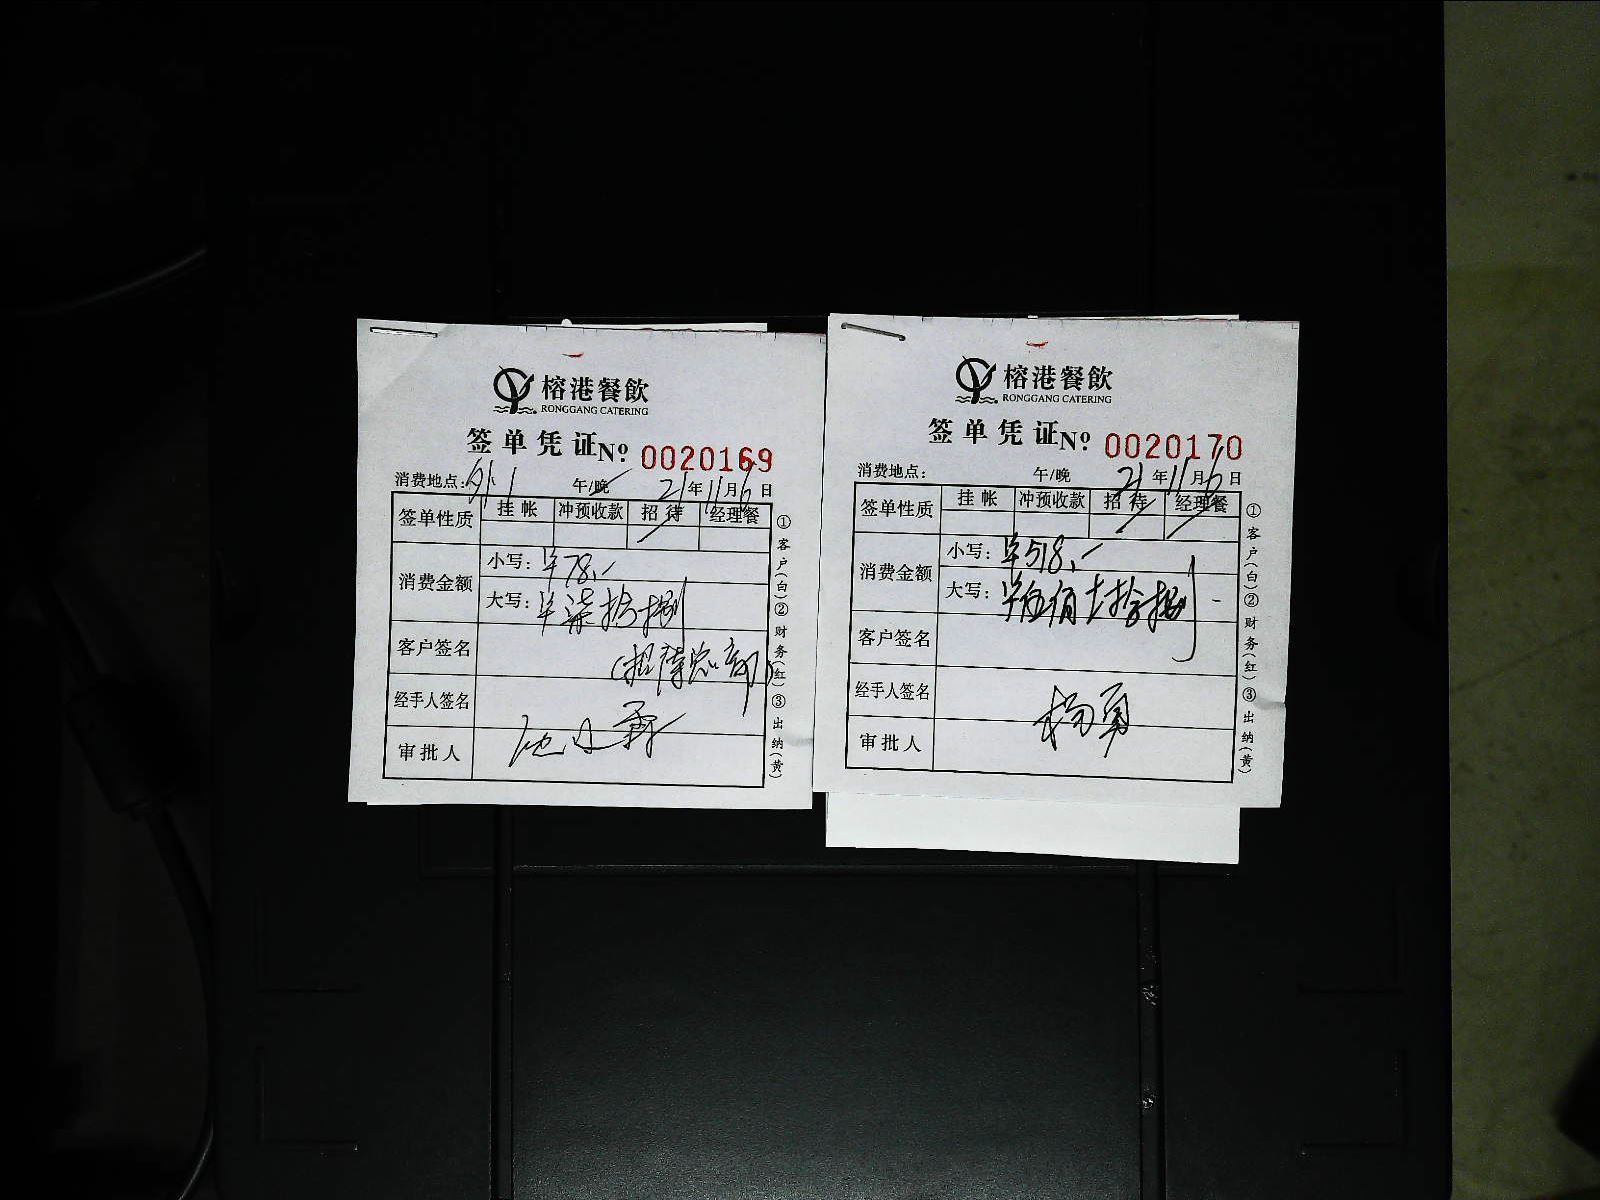 榕港餐飲
RONGGANG CATERING
签单凭证 Nº 0020169
消费地点: 外1 午/晚 21年11月6日
签单性质 挂帐 冲预收款 招待 经理餐
消费金额 小写: ¥78.-
大写: ¥柒拾捌
客户签名 (招待总部)
经手人签名
审批人
①客户(白)②财务(红)③出纳(黄)
榕港餐飲
RONGGANG CATERING
签单凭证 Nº 0020170
消费地点: 午/晚 21年11月6日
签单性质 挂帐 冲预收款 招待 经理餐
消费金额 小写: ¥518.-
大写: ¥伍佰士拾捌
客户签名
经手人签名 杨勇
审批人
①客户(白)②财务(红)③出纳(黄)